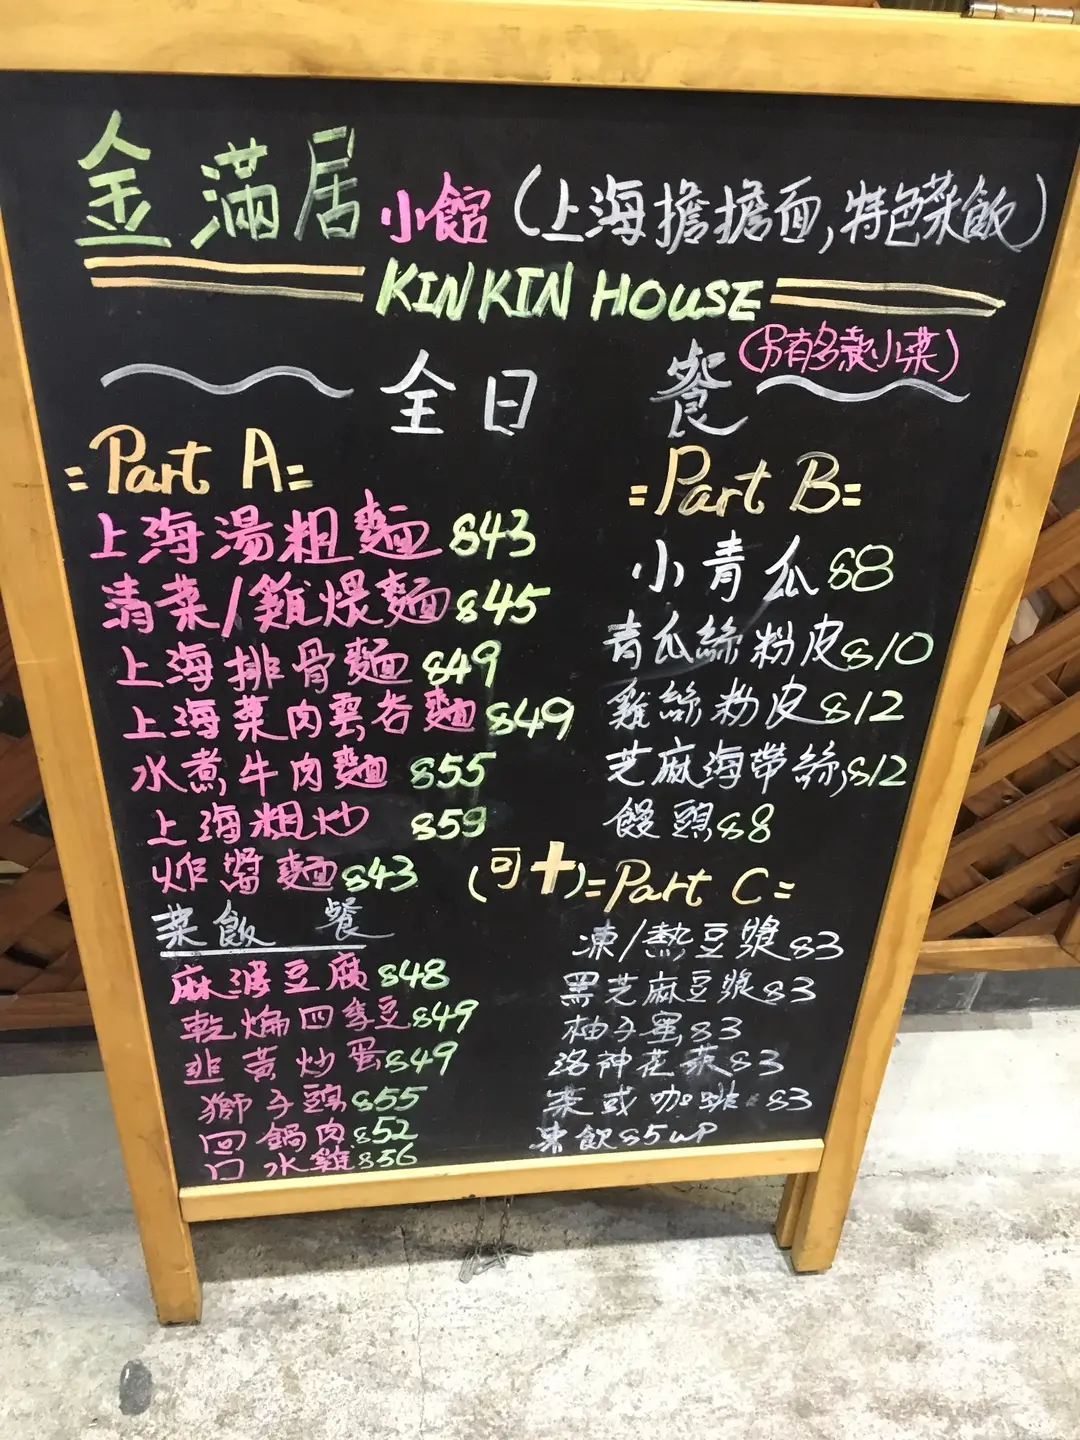 金滿居 小館 (上海擔擔面,特色菜飯)
KIN KIN HOUSE
(另有多款小菜)
全日 餐
=Part A=
上海湯粗麵 $43
清菜/雞煨麵 $45
上海排骨麵 $49
上海菜肉雲吞麵 $49
水煮牛肉麵 $55
上海粗炒 $59
炸醬麵 $43
菜飯 餐
麻婆豆腐 $48
乾煸四季豆 $49
韭黃炒蛋 $49
獅子頭 $55
回鍋肉 $52
口水雞 $56
=Part B=
小青瓜 $8
青瓜絲粉皮 $10
雞絲粉皮 $12
芝麻海帶絲 $12
饅頭 $8
(可+) =Part C=
凍/熱豆漿 $3
黑芝麻豆漿 $3
柚子蜜 $3
洛神花茶 $3
茶或咖啡 $3
凍飲 $5 up